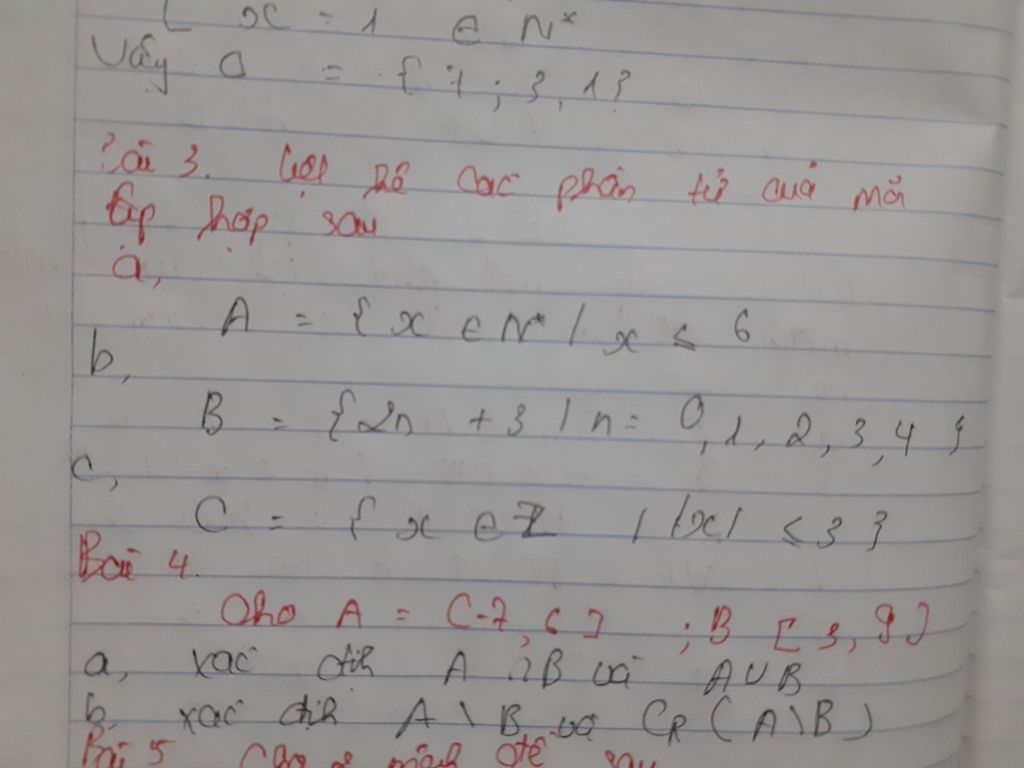 x = 1 ∈ N*
Vậy C = { 7 ; 3, 1 }
Bài 3. Liệt kê các phần tử của mỗi
tập hợp sau
a,
A = { x ∈ N* / x ≤ 6
b,
B = { 2n + 3 / n = 0, 1, 2, 3, 4 }
c,
C = { x ∈ Z / |x| ≤ 3 }
Bài 4.
Cho A = (-7, 6 ] ; B [ 3, 9 ]
a, xác địh A ∩ B và A ∪ B
b, xác địh A \ B và C_R ( A \ B )
Bài 5 Cho mệnh đề sau